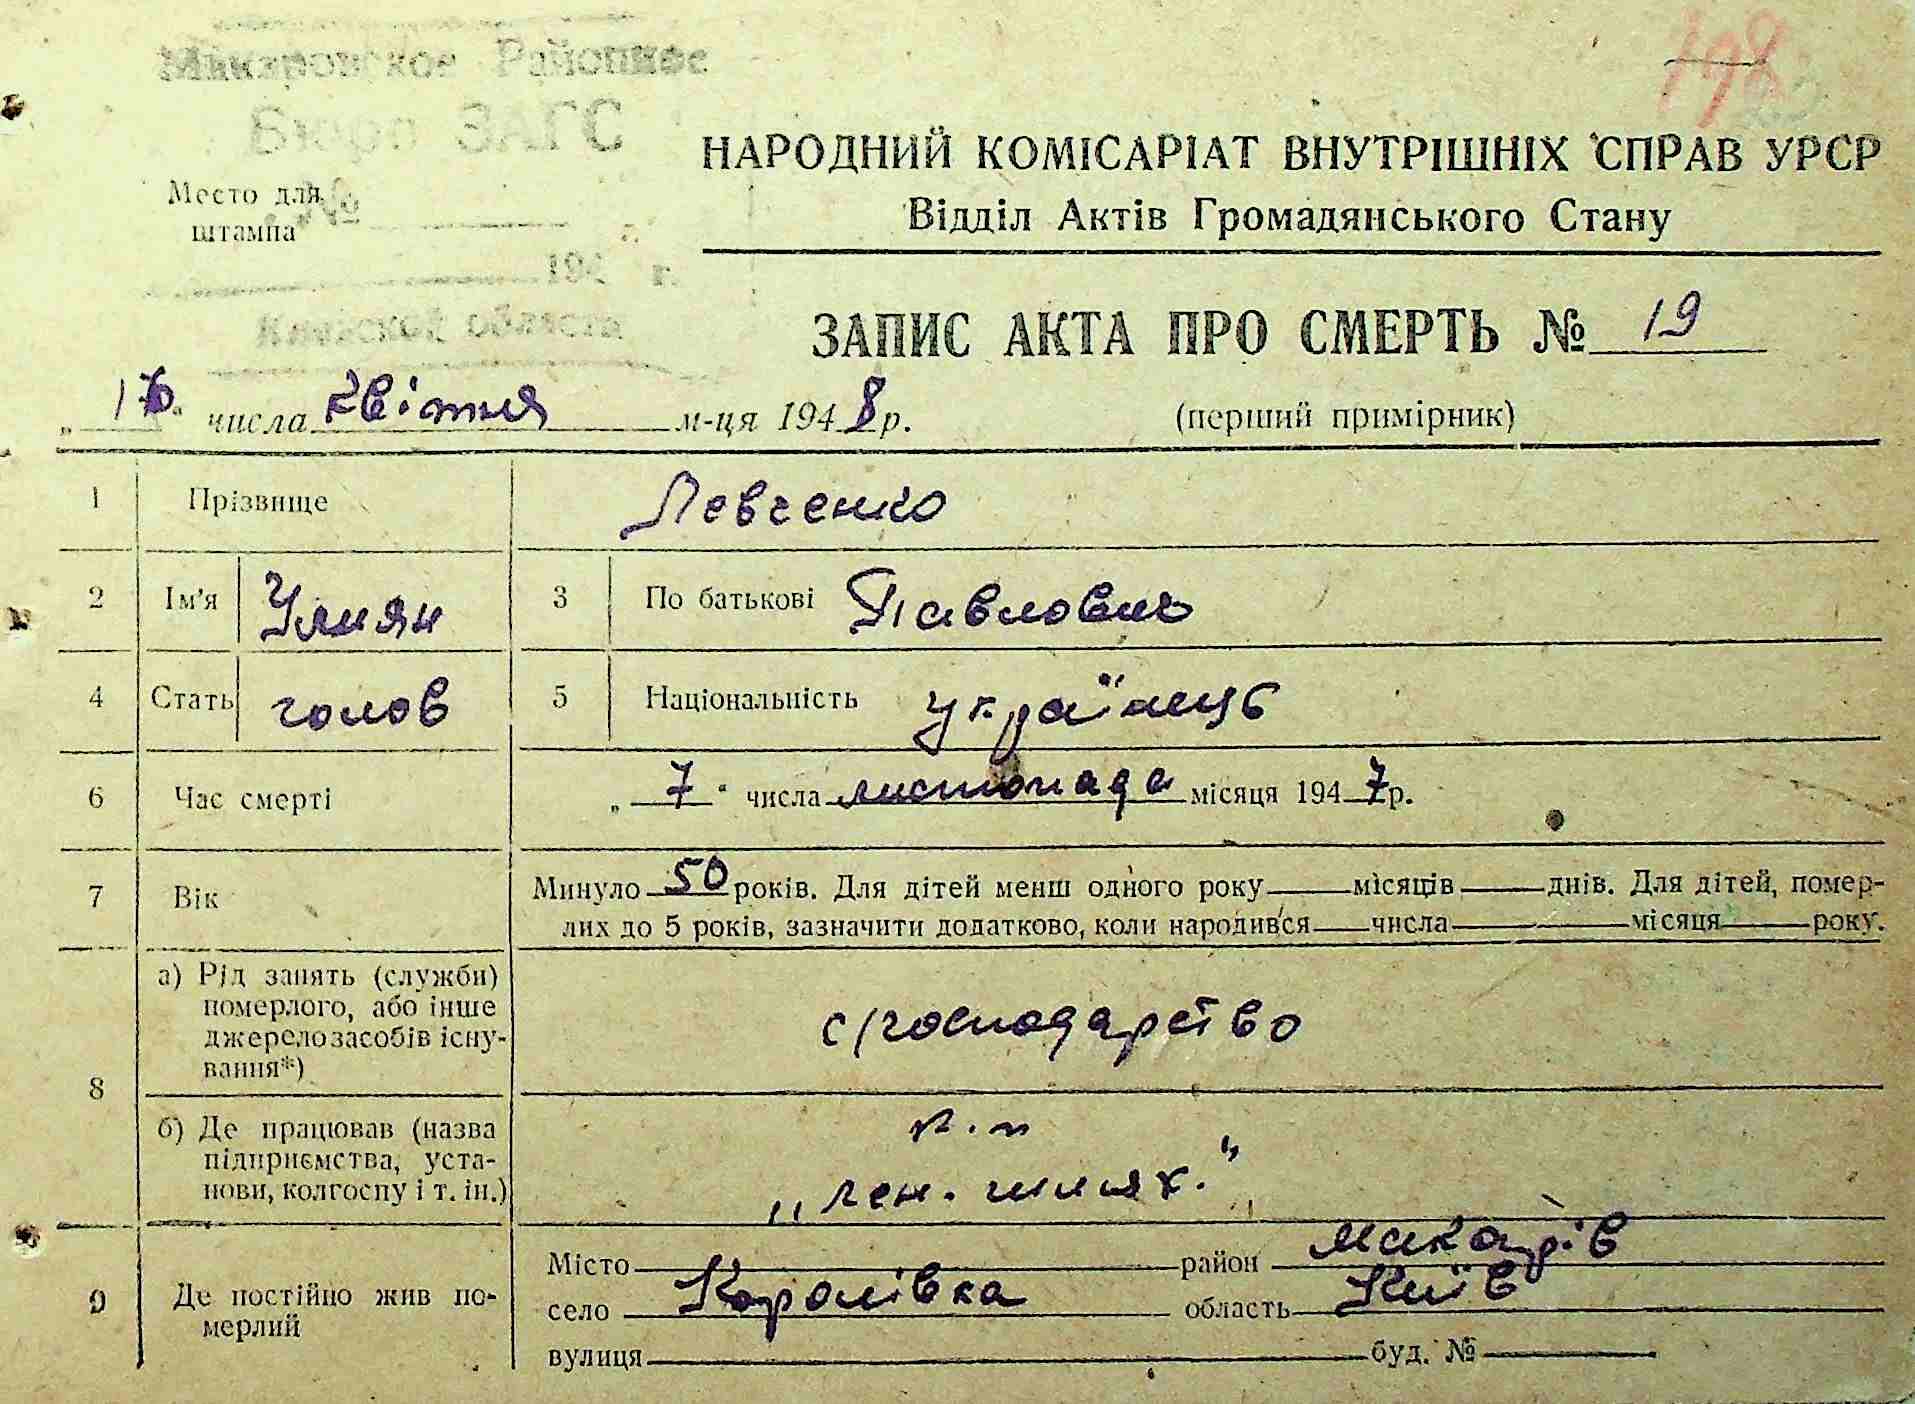 198
Макаровское Районное
Бюро ЗАГС
Место для
штампа
№
194 г.
Киевской области
НАРОДНИЙ КОМІСАРІАТ ВНУТРІШНІХ СПРАВ УРСР
Відділ Актів Громадянського Стану
ЗАПИС АКТА ПРО СМЕРТЬ № 19
„ “ числа квітня м-ця 1948 р.
(перший примірник)
1 Прізвище Левченко
2 Ім'я Улиян 3 По батькові Павлович
4 Стать чолов 5 Національність українець
6 Час смерті „ 7 “ числа листопада місяця 1947 р.
7 Вік Минуло 50 років. Для дітей менш одного року місяців днів. Для дітей, помер-
лих до 5 років, зазначити додатково, коли народився числа місяця року.
8 а) Рід занять (служби)
померлого, або інше
джерело засобів існу-
вання*)
с/господарство
б) Де працював (назва
підприємства, уста-
нови, колгоспу і т. ін.)
к.г
„лен. шлях."
9 Де постійно жив по-
мерлий
Місто район Макарів
село Королівка область Київ
вулиця буд. №